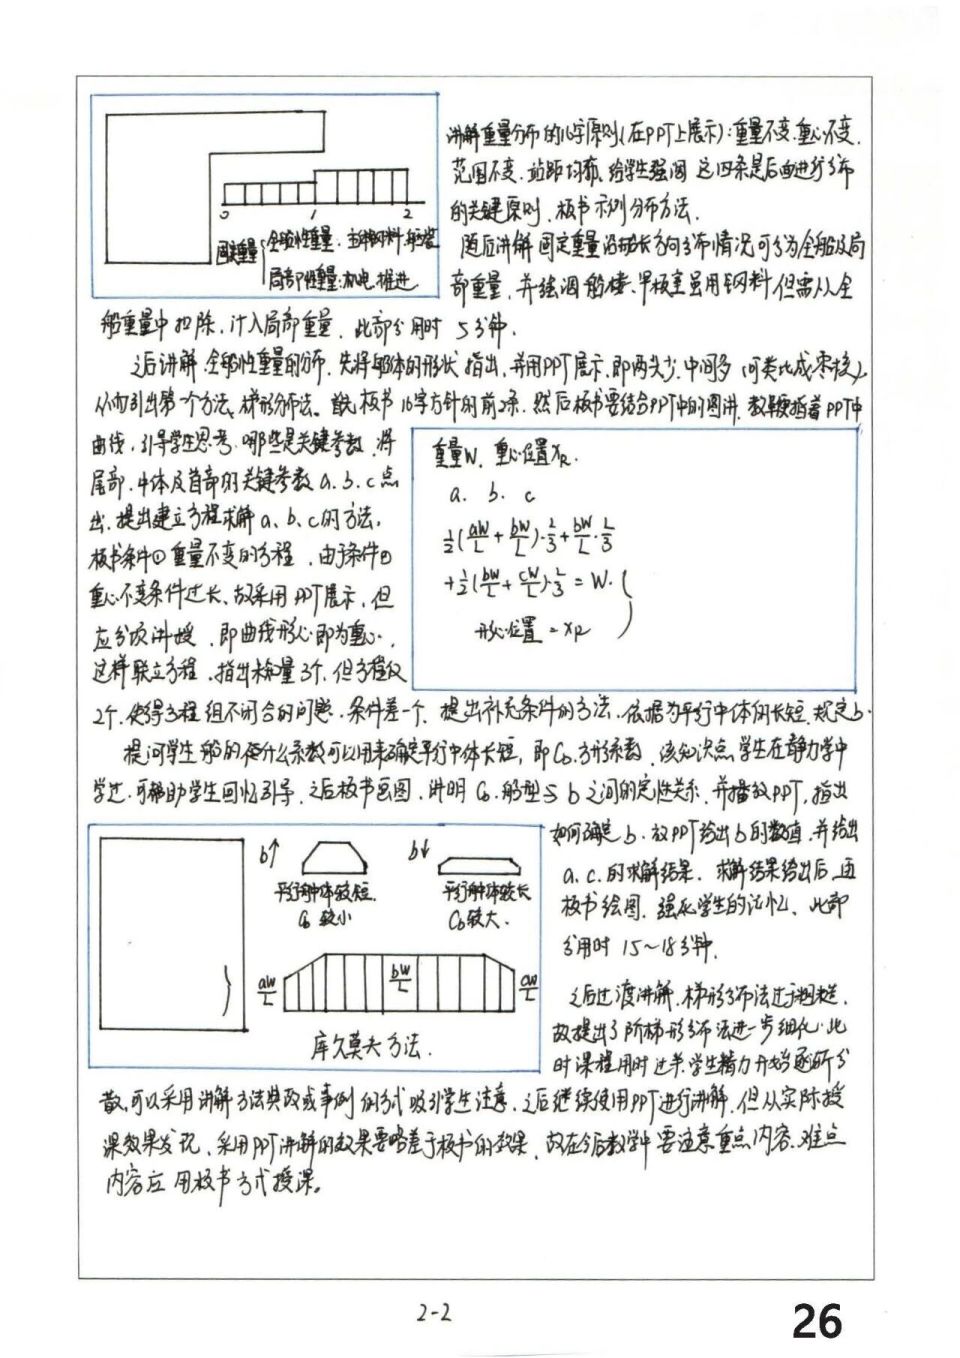 讲解重量分布的16字原则(在PPT上展示):重量不变.重心不变.
范围不变.站距均布.给学生强调 这四条是后面进行分布
的关键原则.板书示例分布方法.
0 1 2
固定重量 全船性重量:主船体钢料.舾装
局部性重量:机电.推进
随后讲解固定重量沿船长方向分布情况可分为全船及局
部重量.并强调船楼、甲板室虽用钢料但需从全
船重量中扣除.计入局部重量.此部分用时 5分钟.
之后讲解全船性重量的分布.先将船体的形状指出.并用PPT展示.即两头少.中间多(可类比成枣核).
从而引出第一个方法.梯形分布法.首先板书16字方针的前2条.然后板书要结合PPT中的图讲.教鞭指着PPT中
曲线.引导学生思考.哪些是关键参数.将
尾部.中体及首部的关键参数a.b.c点
出.提出建立方程求解a、b、c的方法.
板书条件①重量不变的方程.由于条件②
重心不变条件过长、故采用PPT展示.但
应分项讲授.即曲线形心即为重心.
这样联立方程.指出未知量3个.但方程仅
重量W.重心位置XR.
a. b. c
½(aW/L + bW/L)·L/3 + bW/L·L/3
+½(bW/L + cW/L)·L/3 = W.
形心位置 = XR
2个.使得方程组不闭合的问题.条件差一个.提出补充条件的方法.依据为平行中体的长短.规定b.
提问学生船的什么系数可以用来确定平行中体长短.即Cb.方形系数.该知识点学生在静力学中
学过.可帮助学生回忆引导.之后板书画图.讲明Cb.船型与b之间的定性关系.并播放PPT.指出
b↑ b↓
平行中体较短. 平行中体较长
Cb较小 Cb较大.
aW/L bW/L cW/L
库尔莫夫方法.
如何确定b.故PPT给出b的数值.并给出
a.c.的求解结果.求解结果给出后.画
板书绘图.强化学生的记忆.此部
分用时 15~18分钟.
之后过渡讲解.梯形分布法过于粗糙.
故提出了阶梯形分布法进一步细化.此
时课程用时过半.学生精力开始逐渐分
散,可以采用讲解方法典故或事例的方式吸引学生注意.之后继续使用PPT进行讲解.但从实际授
课效果发现.采用PPT讲解的效果要略差于板书的效果.故在今后教学中要注意重点内容.难点
内容应用板书方式授课。
2-2
26